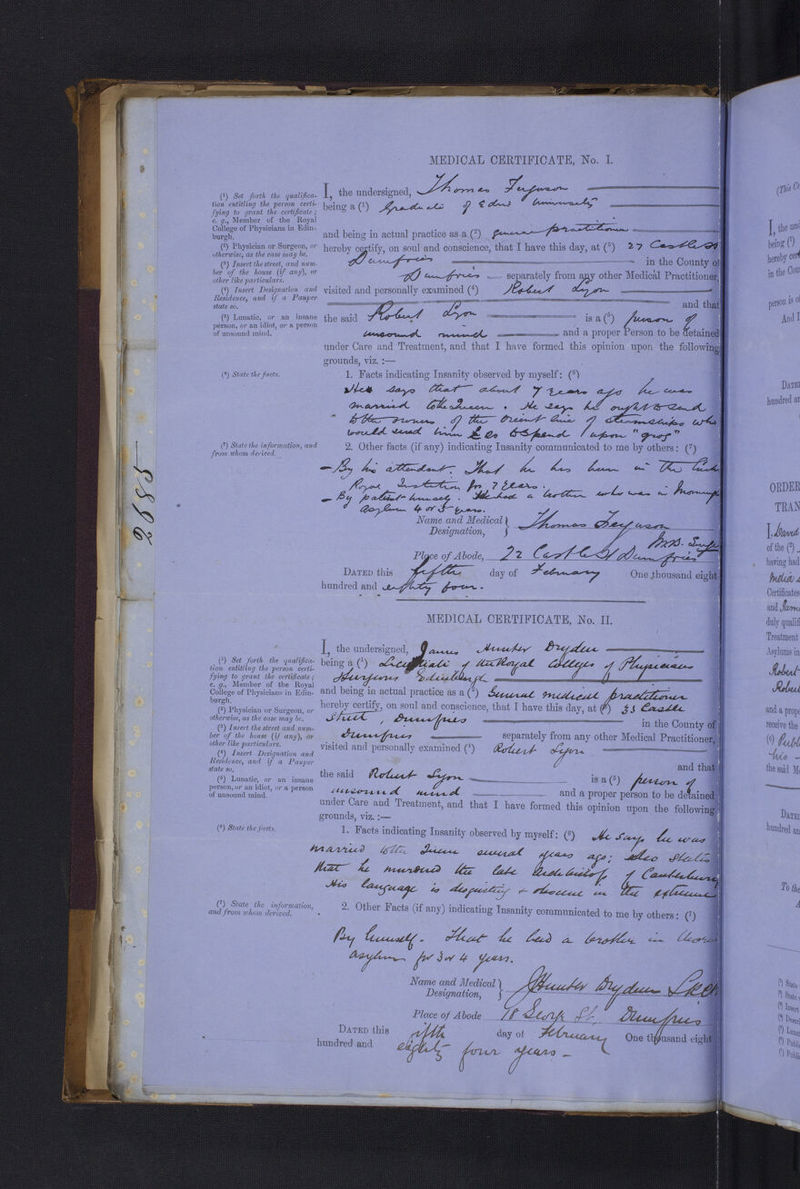 MEDICAL CERTIFICATE, No. I.
(¹) Set forth the qualifica-
tion entitling the person certi-
fying to grant the certificate;
e. g., Member of the Royal
College of Physicians in Edin-
burgh.
(²) Physician or Surgeon, or
otherwise, as the case may be.
(³) Insert the street, and num-
ber of the house (if any), or
other like particulars.
(⁴) Insert Designation and
Residence, and if a Pauper
state so.
(⁵) Lunatic, or an insane
person, or an idiot, or a person
of unsound mind.
(⁶) State the facts.
(⁷) State the information, and
from whom derived.
2685
I, the undersigned, Thomas Ferguson
being a (¹) Graduate of Edin University
and being in actual practice as a (²) general practitioner
hereby certify, on soul and conscience, that I have this day, at (³) 27 Castle St
Dumfries in the County of
Dumfries separately from any other Medical Practitioner,
visited and personally examined (⁴) Robert Lyon
and that
the said Robert Lyon is a (⁵) person of
unsound mind and a proper Person to be detained
under Care and Treatment, and that I have formed this opinion upon the following
grounds, viz. :—
1. Facts indicating Insanity observed by myself: (⁶)
He says that about 7 years ago he was
married to the Queen. He says he ought to send
to the owners of the Orient line of steamships who
would send him to spend upon "grog"
2. Other facts (if any) indicating Insanity communicated to me by others: (⁷)
- By his attendant. That he has been in the
Royal Institution for 7 years.
- By patient himself. He had a brother who was in
asylum 4 or 5 years.
Name and Medical Designation, Thomas Ferguson
M.B.
Place of Abode, 27 Castle St Dumfries
DATED this fifth day of February One thousand eight
hundred and eighty four.
MEDICAL CERTIFICATE, No. II.
(¹) Set forth the qualifica-
tion entitling the person certi-
fying to grant the certificate;
e. g., Member of the Royal
College of Physicians in Edin-
burgh.
(²) Physician or Surgeon, or
otherwise, as the case may be.
(³) Insert the street and num-
ber of the house (if any), or
other like particulars.
(⁴) Insert Designation and
Residence, and if a Pauper
state so.
(⁵) Lunatic, or an insane
person, or an idiot, or a person
of unsound mind.
(⁶) State the facts.
(⁷) State the information,
and from whom derived.
I, the undersigned, James Hunter Dryden
being a (¹) Licentiate of the Royal Colleges of Physicians
Surgeons Edinburgh
and being in actual practice as a (²) General medical practitioner
hereby certify, on soul and conscience, that I have this day, at (³) 33 Castle
Street, Dumfries in the County of
Dumfries separately from any other Medical Practitioner,
visited and personally examined (⁴) Robert Lyon
and that
the said Robert Lyon is a (⁵) person of
unsound mind and a proper person to be detained
under Care and Treatment, and that I have formed this opinion upon the following
grounds, viz. :—
1. Facts indicating Insanity observed by myself: (⁶) He says he was
married to the Queen several years ago; also states
that he murdered the late Archbishop of Canterbury
His language is disgusting & obscene in the extreme
2. Other Facts (if any) indicating Insanity communicated to me by others: (⁷)
By himself. That he had a brother in
asylum for 3 or 4 years.
Name and Medical Designation, J Hunter Dryden
Place of Abode 78 George St. Dumfries
DATED this fifth day of February One thousand eight
hundred and eighty four years -
I, the
being (¹)
hereby
in the
person is
And I
DATED
hundred
ORDER
TRAN
I, David
of the (²)
having had
Certificates
and James
duly
Treatment
Asylums in
Robert
and a prop
receive the
the said
DATED
hundred
To the